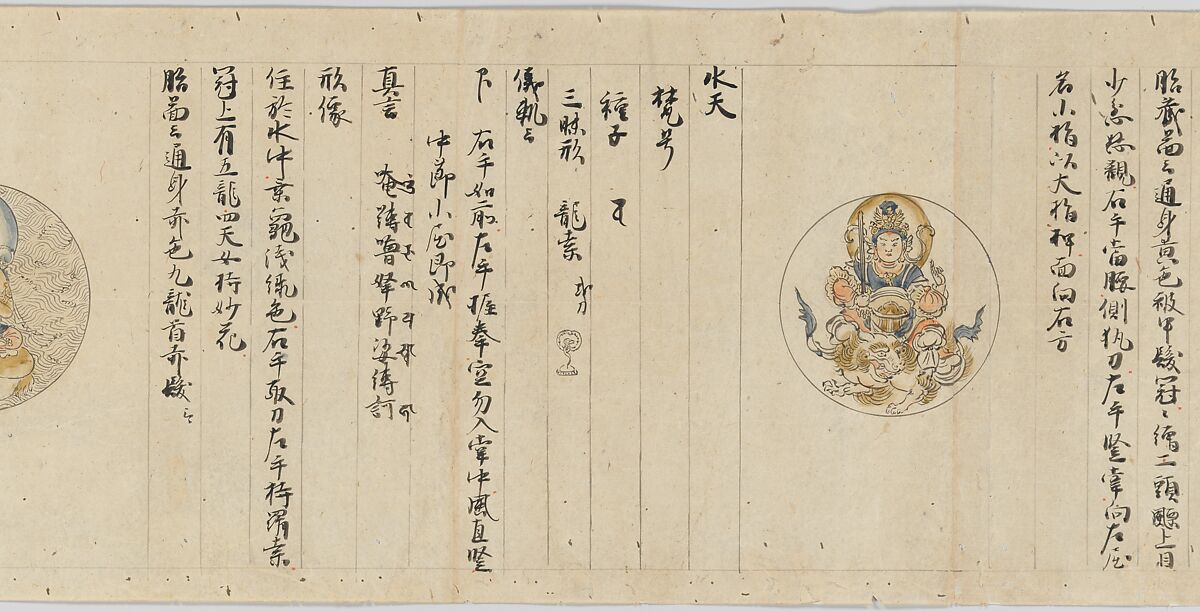 胎蔵啚云通身黄色被甲髮冠〻繒二頭飈上目
少忿怒觀右手當腰側執刀左手竪掌向左屈
名小指以大指押面向右方
水天
梵号
種子
三昧形 龍索 或刀
儀軌云
印 右手如前左手握拳空勿入掌中風直竪
中節小屈即成
真言 唵縛嚕拏野娑縛訶
形像
住於水中乗龜淺綠色右手取刀左手持羂索
冠上有五龍四天女持妙花
胎啚云通身赤色九龍首赤髮云〻